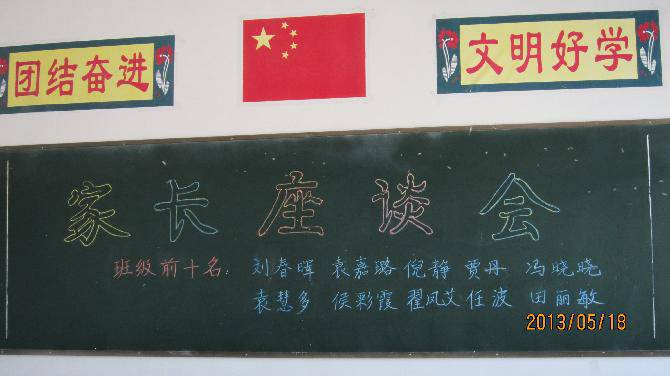 团结奋进
文明好学
家长座谈会
班级前十名：刘春晖 袁嘉璐 倪静 贾丹 冯晓晓
袁慧多 侯彩霞 翟凤艾 任波 田丽敏
2013/05/18